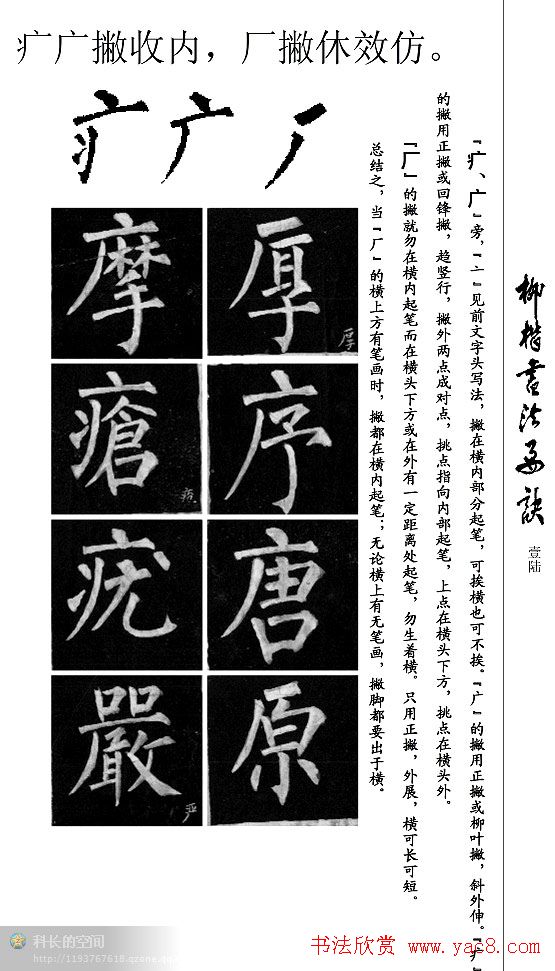 疒广撇收内，厂撇休效仿。
疒广厂
『疒、广』旁，『亠』见前文字头写法，撇在横内部分起笔，可挨横也可不挨。『广』的撇用正撇或柳叶撇，斜外伸。『疒』
的撇用正撇或回锋撇，趋竖行，撇外两点成对点，挑点指向内部起笔，上点在横头下方，挑点在横头外。
『厂』的撇就勿在横内起笔而在横头下方或在外有一定距离处起笔，勿生着横。只用正撇，外展，横可长可短。
总结之，当『厂』的横上方有笔画时，撇都在横内起笔；无论横上有无笔画，撇脚都要出于横。
柳楷书法要诀
壹陆
摩 厚
厚
瘡 序
疮
疣 唐
嚴 原
严
科长的空间
http://1193767618.qzone.qq.co
书法欣赏 www.yac8.com